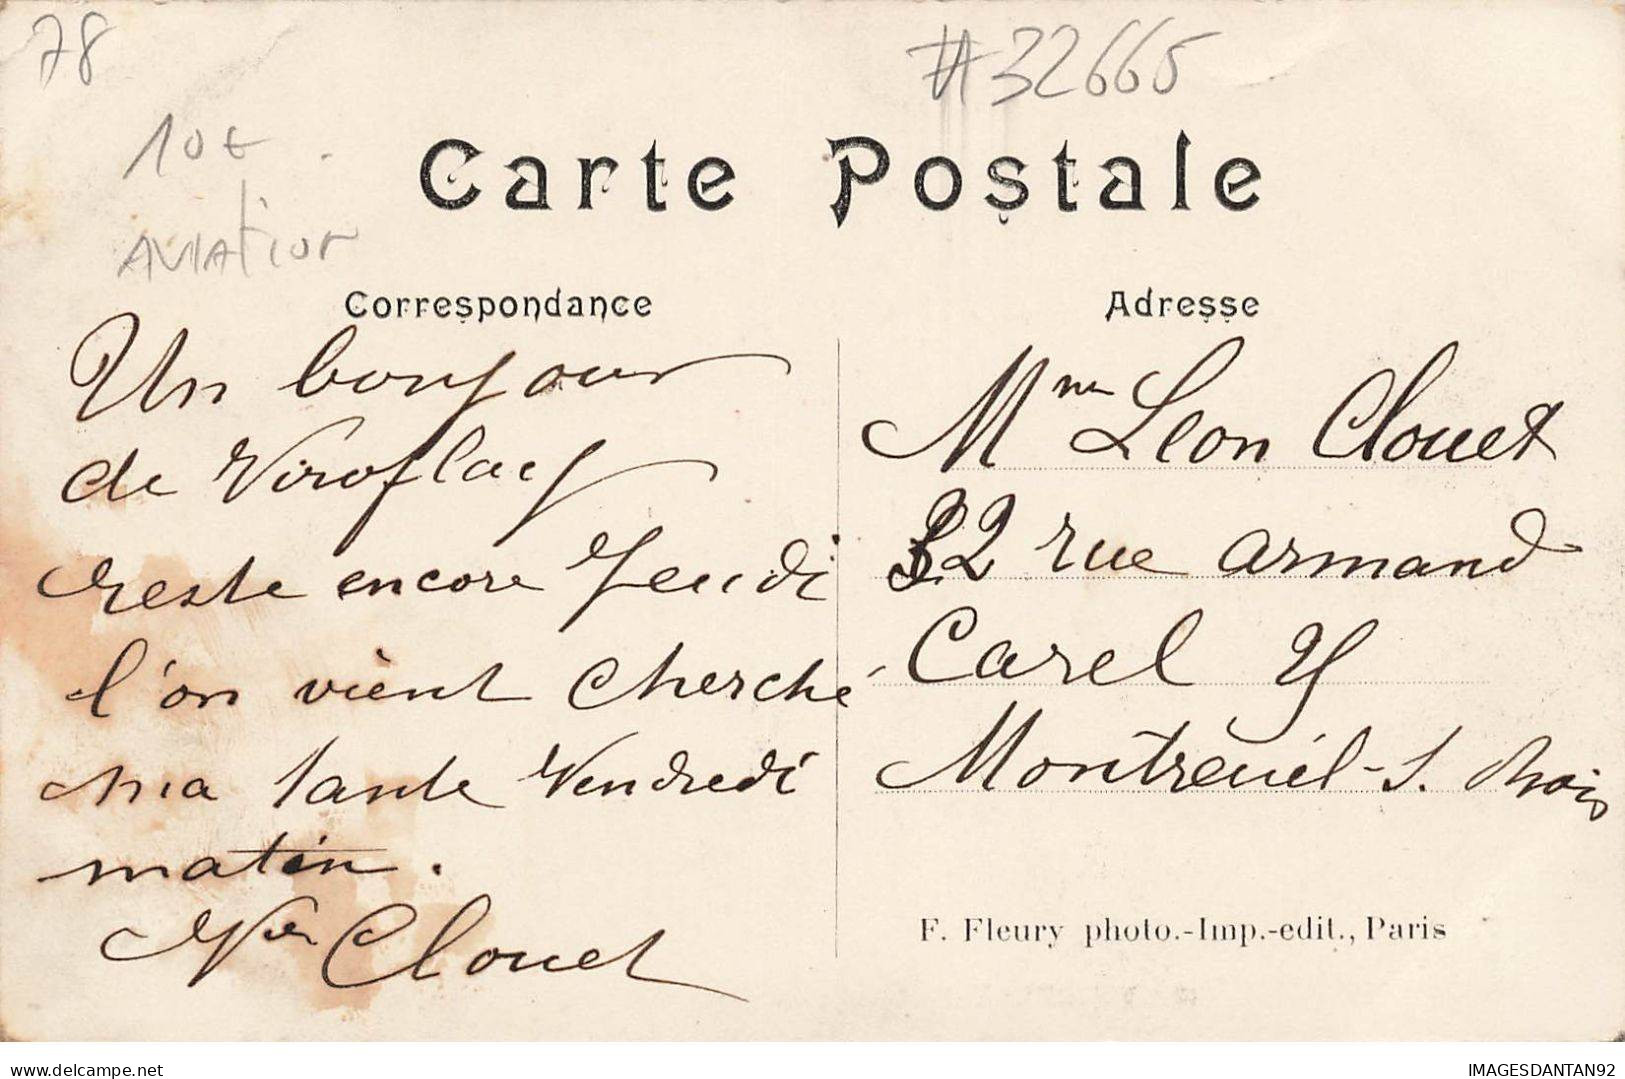 78
#32665
10€
AVIATION
Carte Postale
Correspondance
Un bonjour
de Viroflay
reste encore Jeudi
l'on vient cherche
ma tante Vendredi
matin.
Vve Clouet
Adresse
Mme Leon Clouet
32 rue armand
Carel
Montreuil-s. Bois
F. Fleury photo.-Imp.-edit., Paris
www.delcampe.net
IMAGESDANTAN92